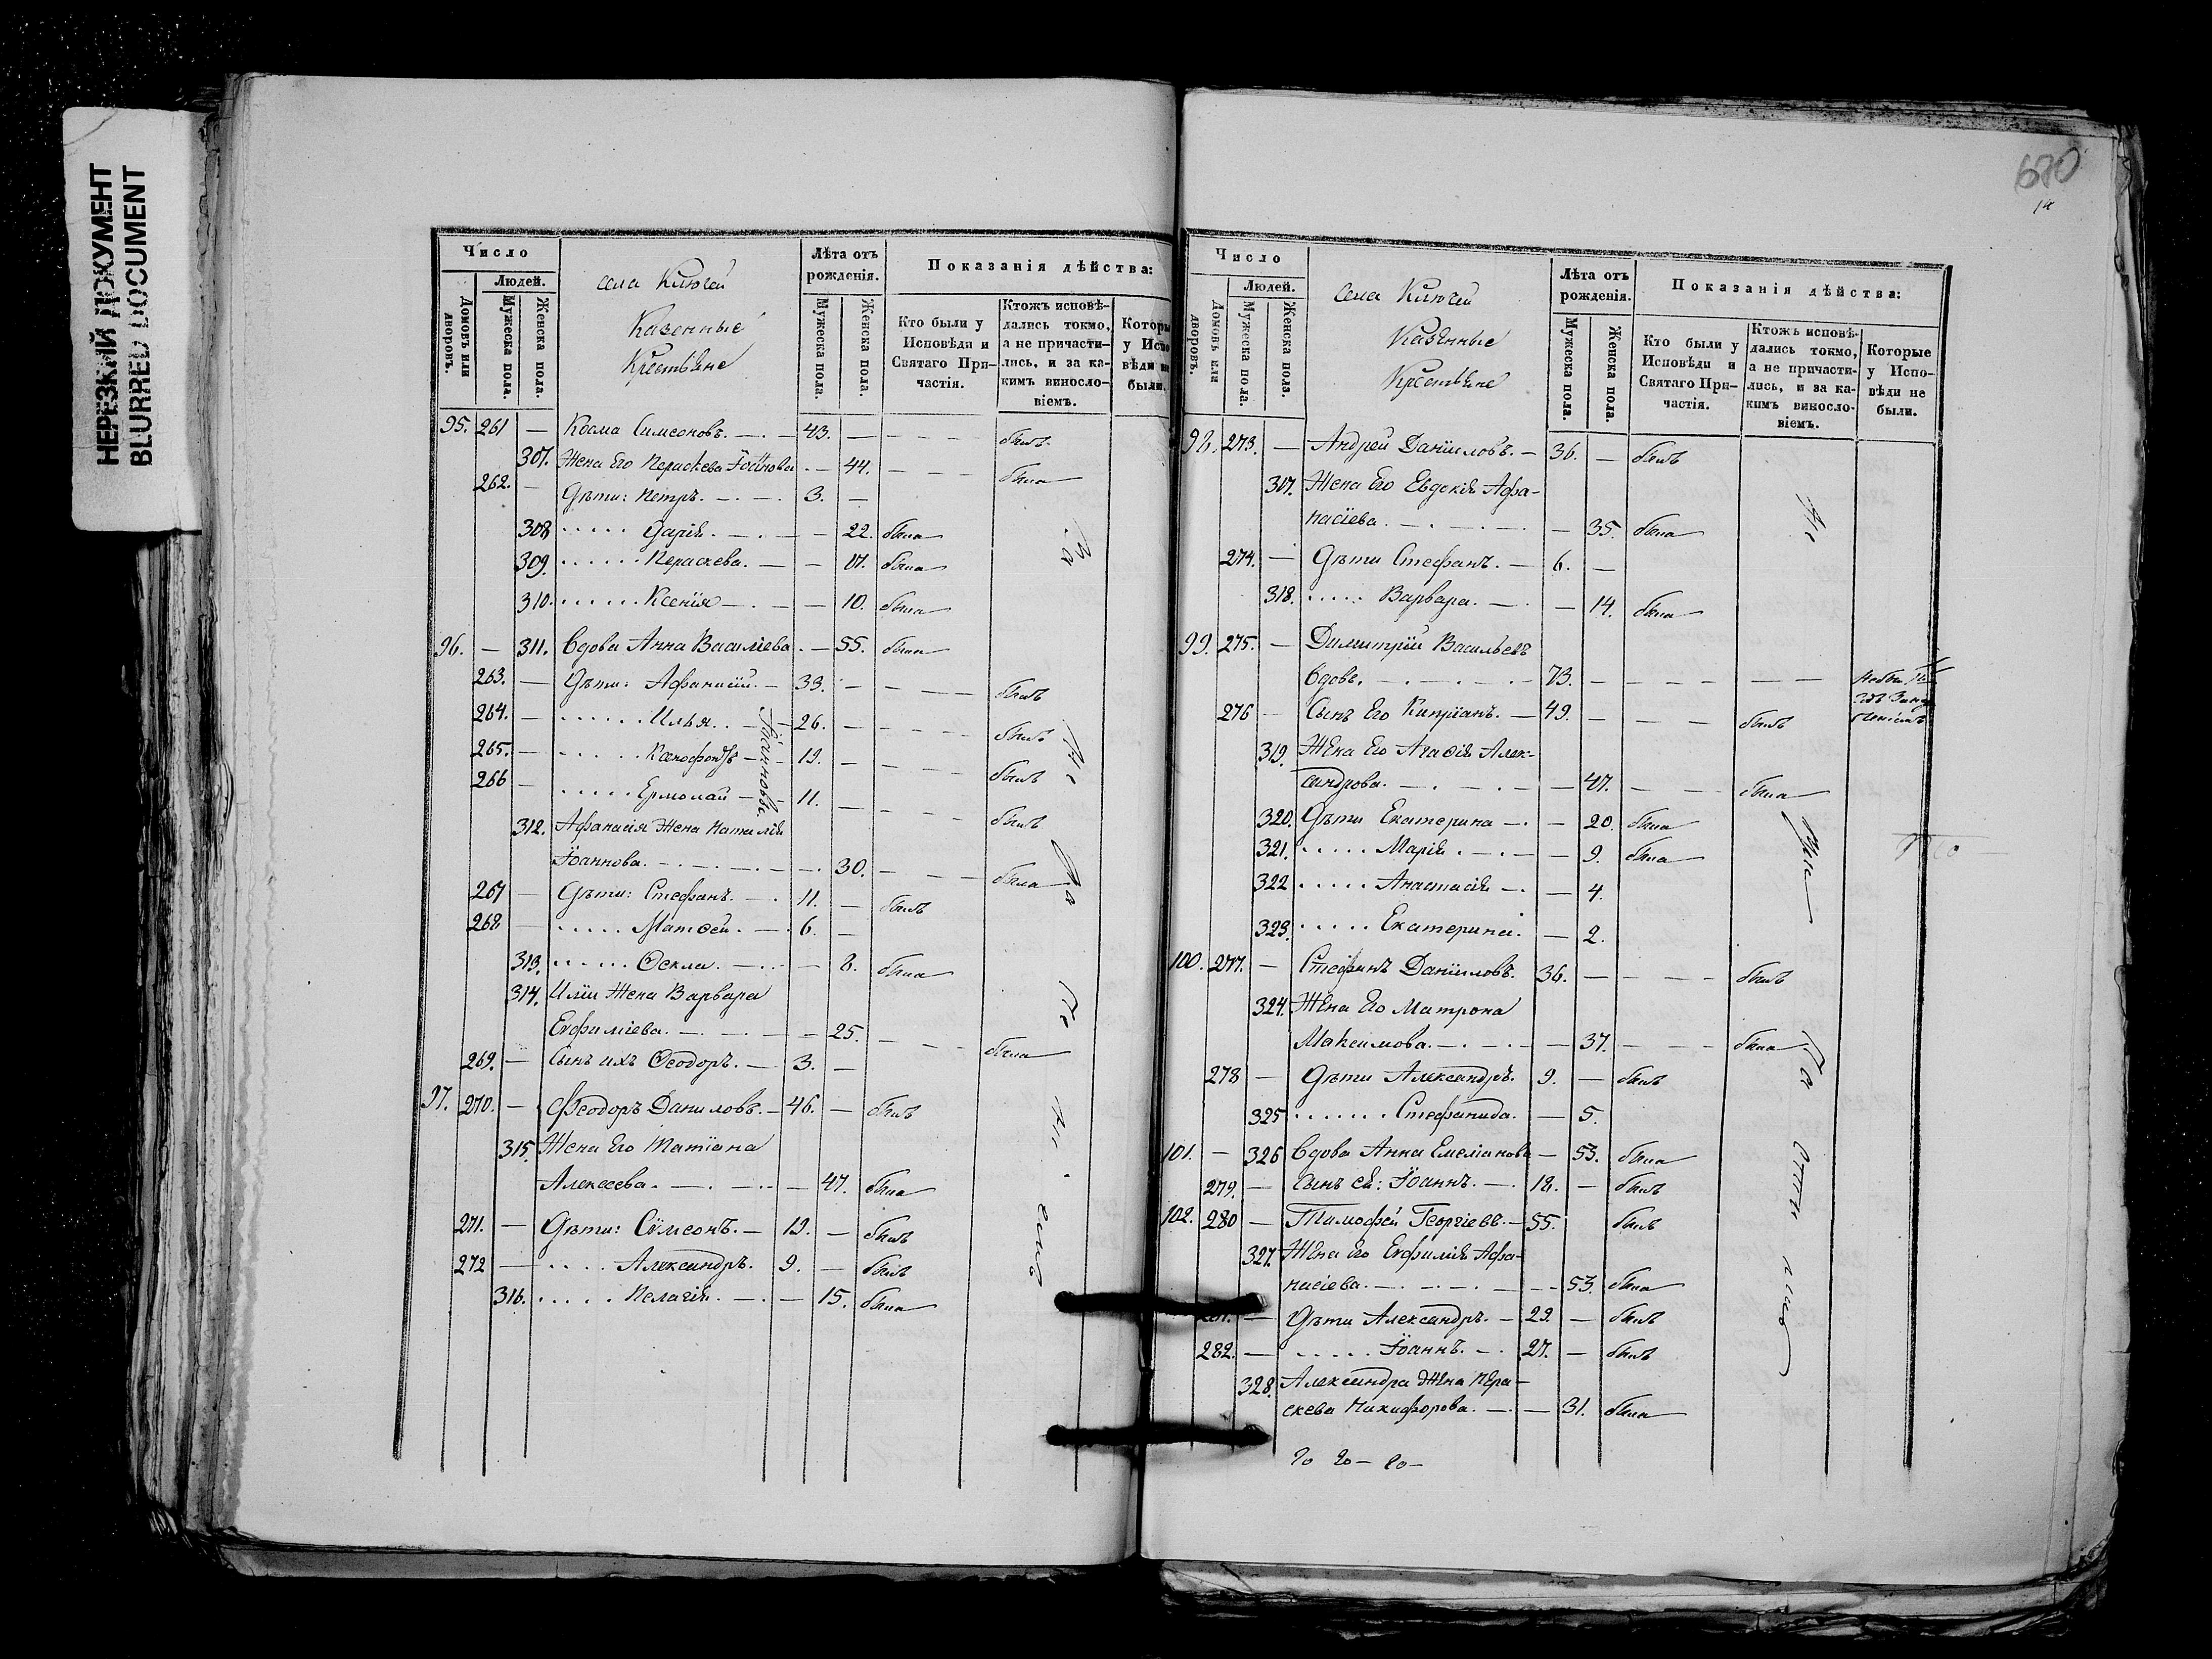 НЕРЕЗКИЙ ДОКУМЕНТ
BLURRED DOCUMENT
680
14
Число
Людей.
Домовъ или дворовъ.
Мужеска пола.
Женска пола.
села Ключей
Казенные
Крестьяне
Лѣта отъ рожденія.
Мужеска пола.
Женска пола.
Показанія дѣйства:
Кто были у Исповѣди и Святаго При-частія.
Ктожъ исповѣ-дались токмо, а не причасти-лись, и за ка-кимъ виносло-віемъ.
Которы у Испо вѣди не были.
95. 261 — Косма Симеоновъ. — 43. — былъ
307. Жена Его Параскева Іоаннова — 44. — была
262. — Дѣти: Петръ. — 3. —
308 ..... Дарія. — 22. была
309. ...... Параскева. — 17. была
310. ...... Ксенія — 10. была
96. — 311. Вдова Анна Василіева. — 55. была
263. — Дѣти: Афанасій. — 33. — былъ
264. — ...... Илья. — 26. — былъ
265. — ..... Ксенофонтъ — 19. — былъ
266 — ..... Ермолай — 11. — былъ
Іоанновы.
312. Афанасія Жена Наталія
Іоаннова. — 30. — была
267 — Дѣти: Стефанъ. — 11. — былъ
268 — ..... Матѳей. — 6. —
313. ...... Ѳекла. — 8. была
314. Иліи Жена Варвара
Евфиміева. — 25. — была
269. — Сынъ ихъ Ѳеодоръ. — 3. —
97. 270. — Феодоръ Даниловъ. — 46. — былъ
315. Жена Его Татіана
Алексеева. — 47. была
271. — Дѣти: Симеонъ. — 19. — былъ
272 — .... Александръ. 9. — былъ
316. ..... Пелагія. — 15. была
Число
Людей.
Домовъ или дворовъ.
Мужеска пола.
Женска пола.
Села Ключей
Казенные
Крестьяне
Лѣта отъ рожденія.
Мужеска пола.
Женска пола.
Показанія дѣйства:
Кто были у Исповѣди и Святаго При-частія.
Ктожъ исповѣ-дались токмо, а не причасти-лись, и за ка-кимъ виносло-віемъ.
Которые у Испо-вѣди не были.
98. 273. — Андрей Даніиловъ. — 36. — былъ
317. Жена Его Евдокія Афа-
насіева. — 35. была
274. — Дѣти Стефанъ. — 6. —
318. ..... Варвара. — 14. была
99. 275. — Димитрій Васильевъ
Вдовъ. — 73. —
276 — Сынъ Его Кипріанъ. — 49. — былъ
319. Жена Его Агаѳія Алек-
сандрова. — 47. — была
320. Дѣти Екатерина — 20. была
321. ..... Марія. — 9. была
322 ..... Анастасія — 4.
323. ..... Екатерина. — 2.
100. 277. — Стефанъ Даніиловъ. 36. — былъ
324. Жена Его Матрона
Максимова. — 37. — была
278 — Дѣти Александръ. 9. — былъ
325 ....... Стефанида. — 5.
101. — 326 Вдова Анна Емеліанова — 53. была
279. — Сынъ ея: Іоаннъ. — 18. — былъ
102. 280 — Тимофей Георгіевъ. — 55. былъ
327. Жена Его Евфимія Афа-
насіева. — 53. была
281. — Дѣти Александръ. — 29. — былъ
282. — ..... Іоаннъ. — 27. — былъ
328. Александра Жена Пара-
скева Никифорова. — 31. была